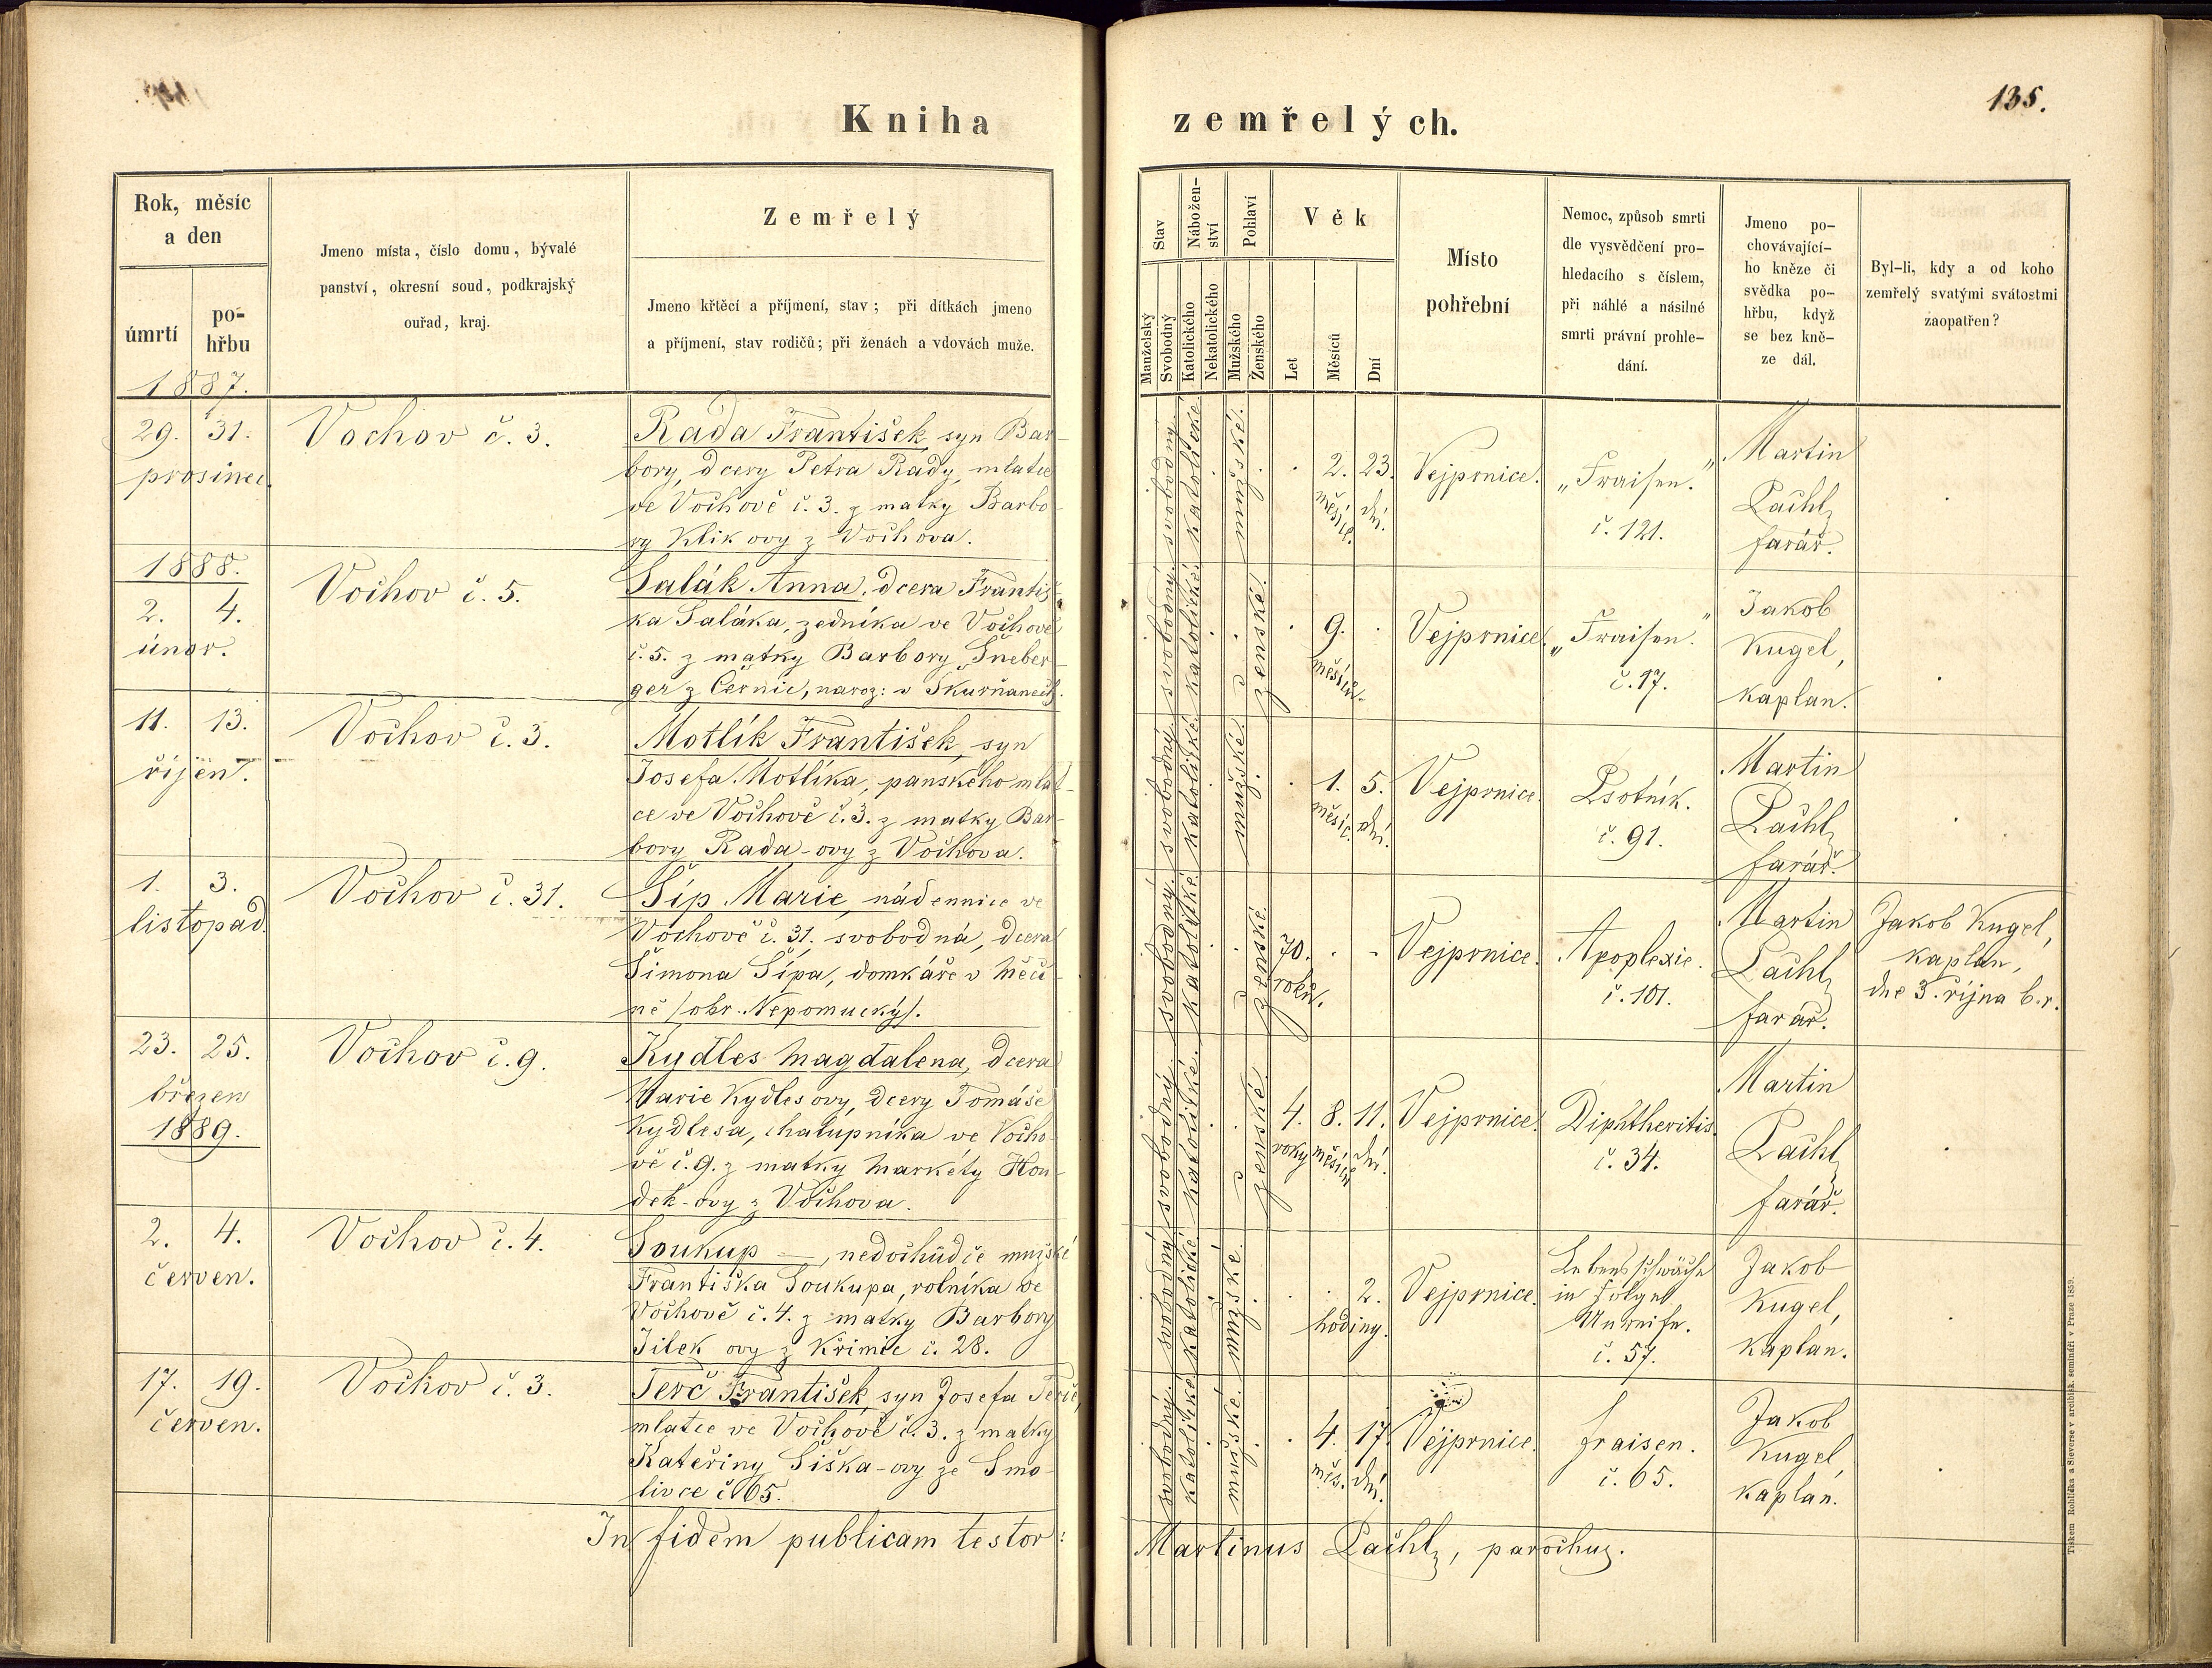 135.
Kniha zemřelých.
Rok, měsíc
a den
úmrtí
po-
hřbu
Jmeno místa, číslo domu, bývalé
panství, okresní soud, podkrajský
ouřad, kraj.
Zemřelý
Jmeno křtěcí a příjmení, stav; při dítkách jmeno
a příjmení, stav rodičů; při ženách a vdovách muže.
Stav
Manželský
Svobodný
Nábožen-
ství
Katolického
Nekatolického
Pohlaví
Mužského
Ženského
Věk
Let
Měsíců
Dní
Místo
pohřební
Nemoc, způsob smrti
dle vysvědčení pro-
hledacího s číslem,
při náhlé a násilné
smrti právní prohle-
dání.
Jmeno po-
chovávající-
ho kněze či
svědka po-
hřbu, když
se bez kně-
ze dál.
Byl-li, kdy a od koho
zemřelý svatými svátostmi
zaopatřen?
1887.
29. 31.
prosinec.
Vochov č. 3.
Rada František, syn Bar-
bory, dcery Petra Rady, mlatce
ve Vochově č. 3. z matky Barbo-
ry Klikovy z Vochova.
svobodný.
katolické.
mužské.
2. 23.
měsíc. dní.
Vejprnice.
„Fraisen."
č. 121.
Martin
Lachl,
farář.
1888.
2. 4.
únor.
Vochov č. 5.
Salák Anna, dcera Františ-
ka Saláka, zedníka ve Vochově
č. 5. z matky Barbory Šneber-
ger z Černic, naroz: v Skurňanech.
svobodný.
katolické.
ženské.
9.
měsíců.
Vejprnice.
„Fraisen."
č. 17.
Jakob
Kugel,
kaplan.
11. 13.
říjen.
Vochov č. 3.
Motlík František, syn
Josefa Motlíka, panského mlat-
ce ve Vochově č. 3. z matky Bar-
bory Rada-ovy z Vochova.
svobodný.
katolické.
mužské.
1. 5.
měsíc. dní.
Vejprnice.
Psotník.
č. 91.
Martin
Lachl,
farář.
1. 3.
listopad.
Vochov č. 31.
Šíp Marie, nádennice ve
Vochově č. 31. svobodná, dcera
Šimona Šípa, domkáře v Měčí-
ně /okr. Nepomucký/.
svobodný.
katolické.
ženské.
70.
roků.
Vejprnice.
Apoplexie.
č. 101.
Martin
Lachl,
farář.
Jakob Kugel,
kaplan,
dne 3. října b. r.
23. 25.
březen
1889.
Vochov č. 9.
Kydles Magdalena, dcera
Marie Kydlesovy, dcery Tomáše
Kydlesa, chalupníka ve Vocho-
vě č. 9. z matky Markéty Hou-
dek-ovy z Vochova.
svobodný.
katolické.
ženské.
4. 8. 11.
roky měsíců dní.
Vejprnice.
Diphtheritis
č. 34.
Martin
Lachl,
farář.
2. 4.
červen.
Vochov č. 4.
Soukup —, nedochůdče mužské
Františka Soukupa, rolníka ve
Vochově č. 4. z matky Barbory
Jílek ovy z Křimic č. 28.
svobodný.
katolické.
mužské.
2.
hodiny.
Vejprnice.
Lebensschwäche
in Folge
Unreife.
č. 57.
Jakob
Kugel,
kaplan.
17. 19.
červen.
Vochov č. 3.
Terč František, syn Josefa Terče,
mlatce ve Vochově č. 3. z matky
Kateřiny Šiška-ovy ze Smo-
livce č. 65.
svobodný.
katolické.
mužské.
4. 17.
měs. dní.
Vejprnice.
fraisen.
č. 65.
Jakob
Kugel,
kaplan.
In fidem publicam testor:
Martinus Lachl, parochus.
Tiskem Rohlíčka a Sieverse v arcibisk. semináři v Praze 1859.